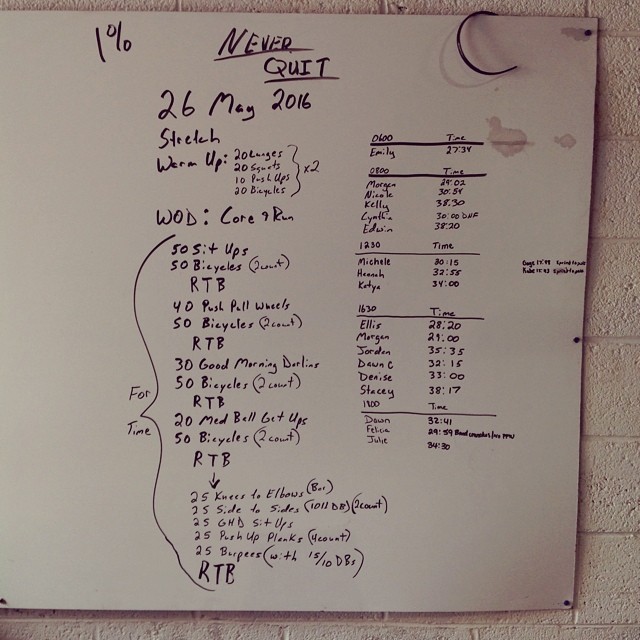 1%
NEVER
QUIT
26 May 2016
Stretch
Warm Up: 20 Lunges
20 Squats
10 Push Ups
20 Bicycles
x2
WOD: Core & Run
For
Time
50 Sit Ups
50 Bicycles (2count)
RTB
40 Push Pull Wheels
50 Bicycles (2count)
RTB
30 Good Morning Darlins
50 Bicycles (2 count)
RTB
20 Med Ball Get Ups
50 Bicycles (2 count)
RTB
25 Knees to Elbows (Bar)
25 Side to Sides (DB) (2count)
25 GHD Sit Ups
25 Push Up Planks (4count)
25 Burpees (with 15/10 DBs)
RTB
0600 Time
Emily 27:34
0800 Time
Morgan 29:02
Nicole 30:54
Kelly 38:30
Cynthia 30:00 DNF
Edwin 38:20
1230 Time
Michele 30:15
Hannah 32:55
Katya 34:00
1630 Time
Ellis 28:20
Morgan 29:00
Jordan 35:35
Dawn C 32:15
Denise 33:00
Stacey 38:17
1800 Time
Dawn 32:41
Felicia 29:59
Julie 34:30